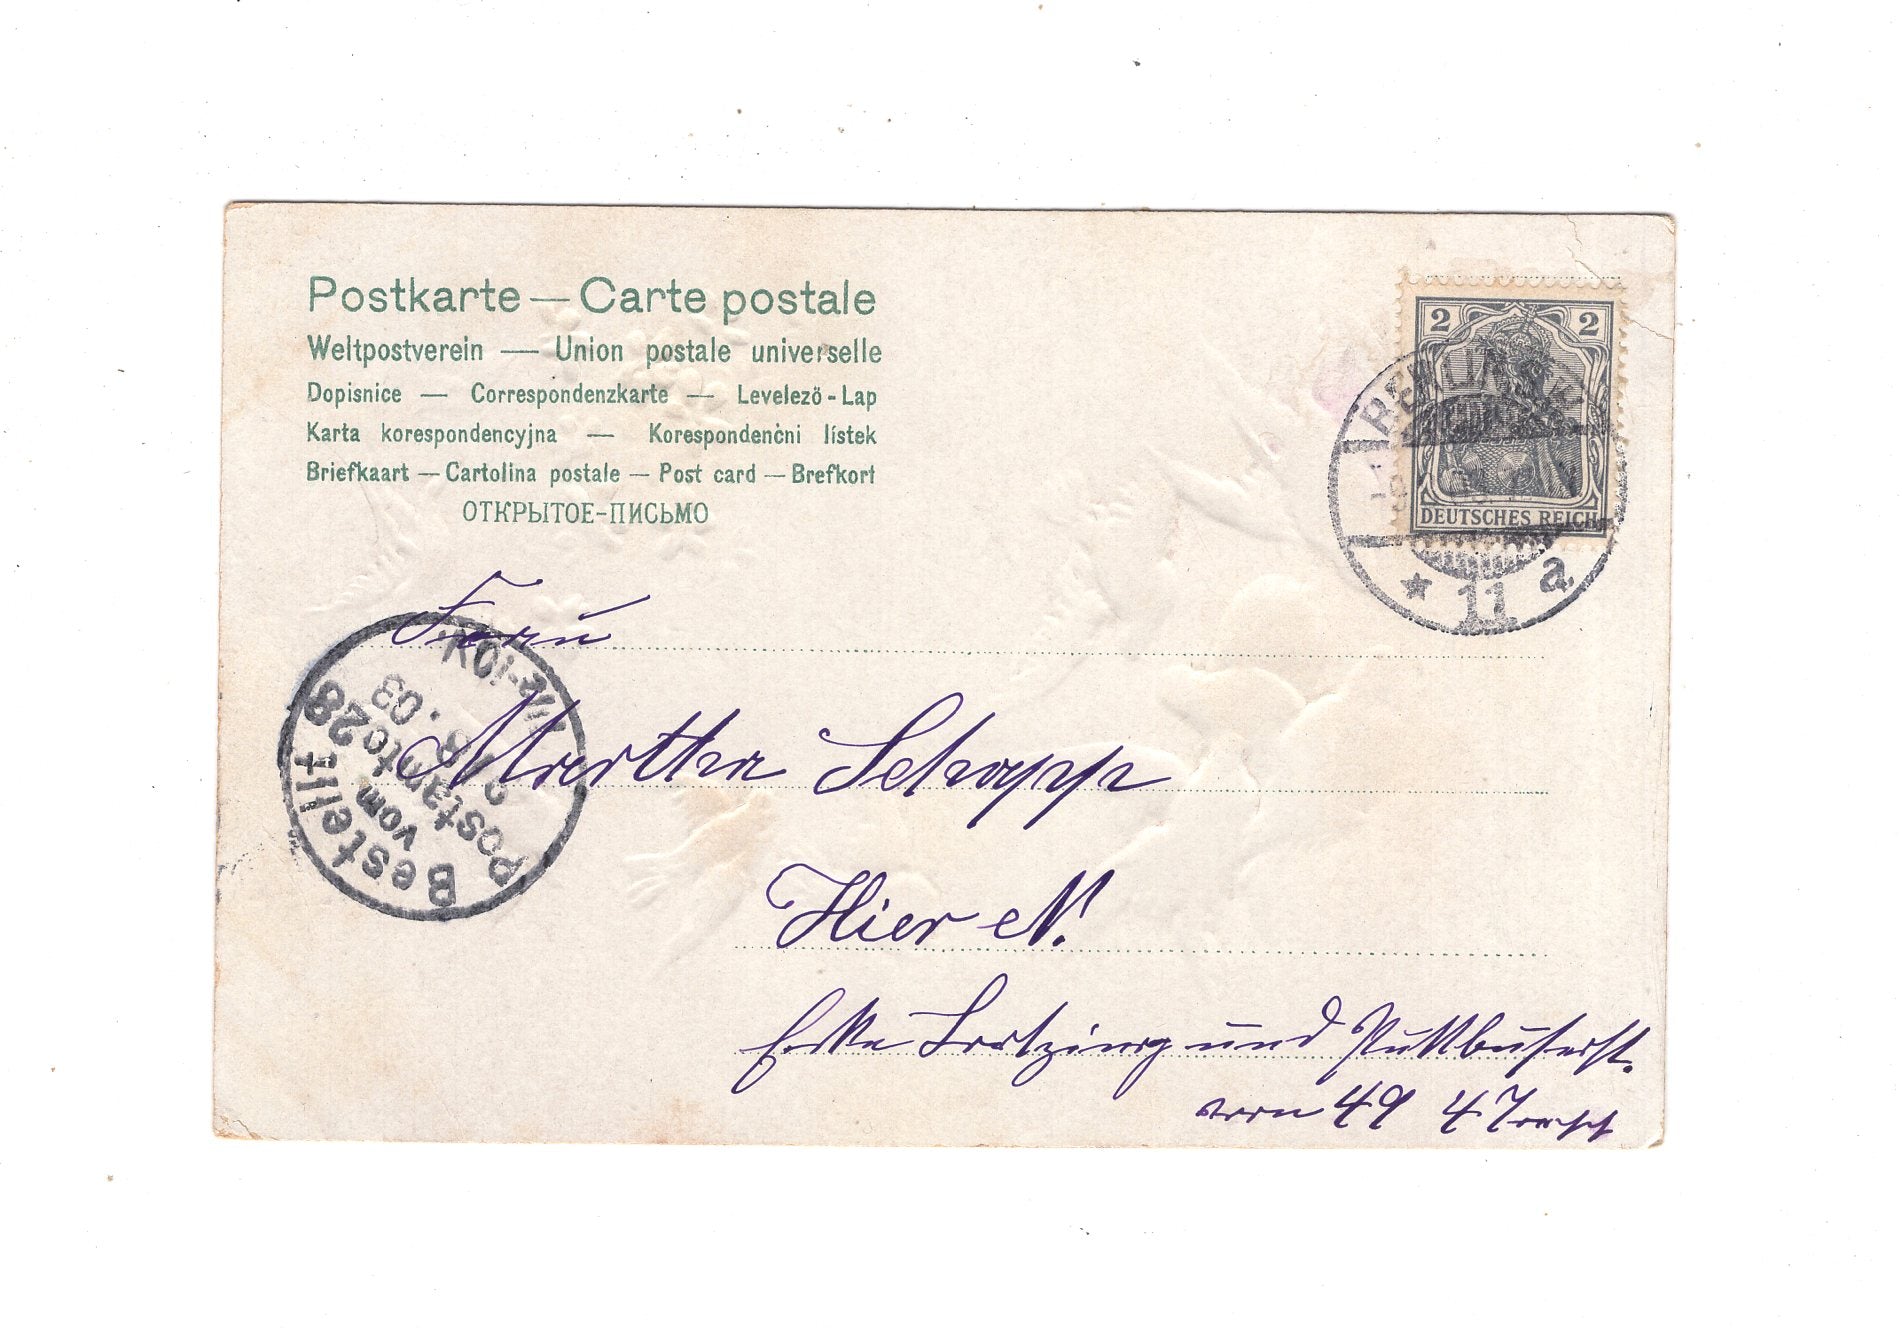 Postkarte — Carte postale
Weltpostverein — Union postale universelle
Dopisnice — Correspondenzkarte — Levelező - Lap
Karta korespondencyjna — Korespondenčni lístek
Briefkaart — Cartolina postale — Post card — Brefkort
ОТКРЫТОЕ-ПИСЬМО
2 2
DEUTSCHES REICH
BERLIN
* 11 a
Bestellt
vom
Postamte 28
03
Frau
Martha Schopp
Hier N.
Ecke Lortzing und Puttbuserst.
vorn 49 4 Trp